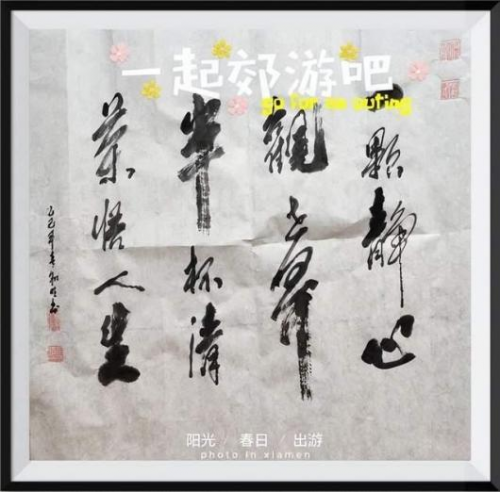 一起郊游吧
go for an outing
一颗静心
觀世界
半杯清
茶悟人生
乙巳年春
阳光 / 春日 / 出游
photo in xiamen